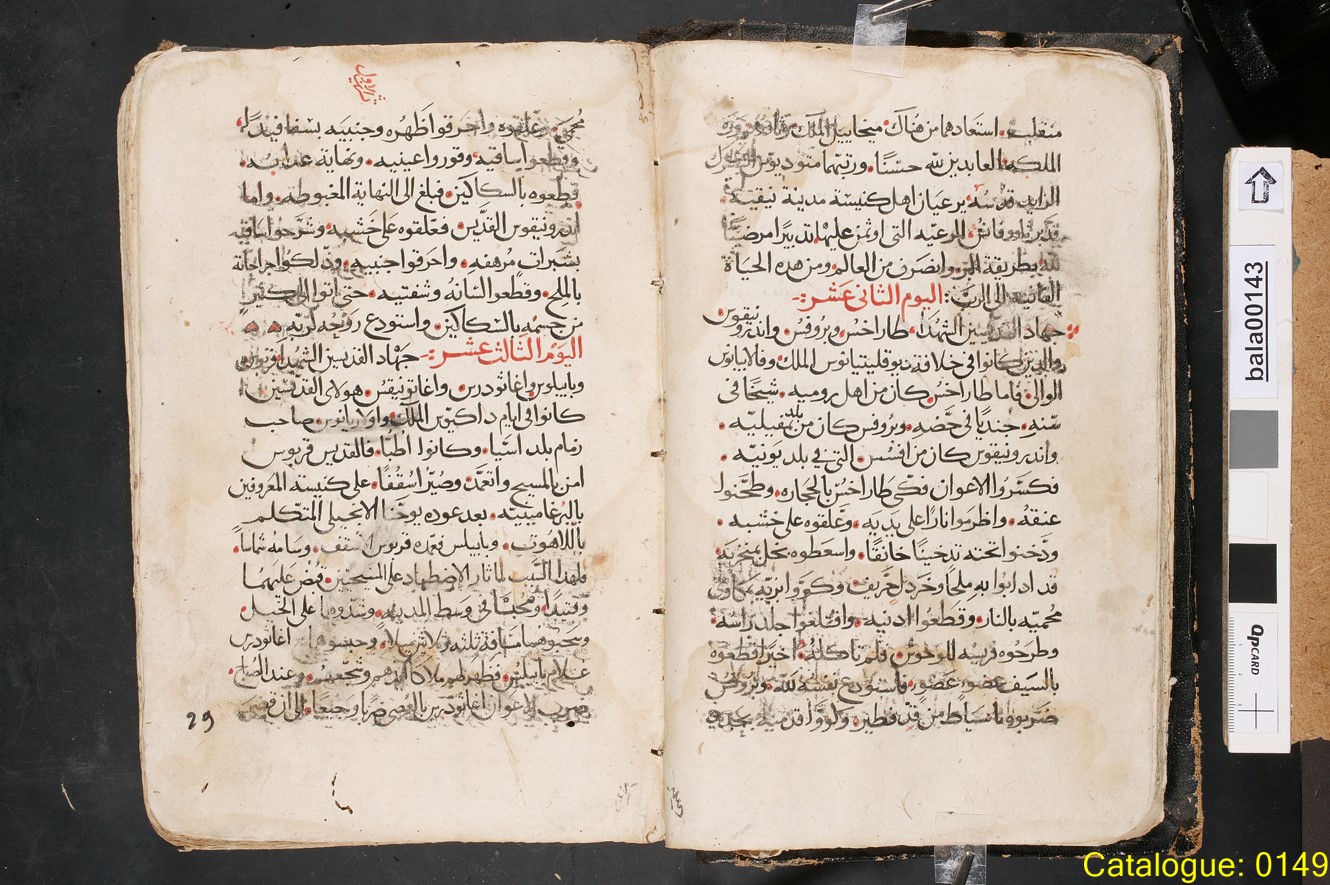 منقلبة. استعادهما من هناك ميخاييل الملك
الملكة العابدين لله حسنًا. ورتبهما
قدسه يرعيان اهل كنيسة مدينة نيقية.
الرعيه التى اوتمن عليها تدبيرًا مرضيًا
لله بطريقة البر. وانصرف من العالم ومن هذه الحياة
الفانية الى الرب: اليوم الثانى عشر:-
جهاد القديسين الشهدا. طاراخس وبروفس واندرونيقوس
والذين كانوا فى خلافة ديوقليتيانوس الملك. وفلابيانوس
الوالى. فاما طاراخس كان من اهل روميه. شيخًا فى
سنه. جنديًا فى خصه. وبروفس كان من بلد بمفيليه.
واندرونيقوس كان من افسس. التى فى بلد يونيه.
فكسروا الاعوان فكى طاراخس بالحجاره. وطحنوا
عنقه. واظرموا نارًا على يديه. وعلقوه على خشبه.
ودخنوا تحته تدخينًا خانقًا. واسعطوه بخل بمنخريه
قد ادابوا به ملحًا وخردل حريف. وكووا
محميه بالنار. وقطعوا ادنيه. واقتلعوا جلد راسه.
وطرحوه فريسه للوحوش. فلم تاكله. اخيرًا قطعوه
بالسيف عضو عضو. فاستودع نفسه لله. وبروفس
ضربوه باسياط من
تشرين الاول
واحرقوا ظهره وجنبيه بسفافيد.
وقطعوا ساقيه. وقوروا عينيه. ونهاية عذابه.
قطعوه بالسكاكين. فبلغ الى النهاية المغبوطه. واما
اندرونيقوس القديس. فعلقوه على خشبه. وشرحوا ساقيه
بشبرات مرهفه. واحرقوا جنبيه. ودلكوا جراحاته
بالملح. وقطعوا لسانه وشفتيه. حتى اتوا الى كثير
من جسمه بالسكاكين. واستودع روحه لربه.
اليوم الثالث عشر:- جهاد القديسين الشهدا قربوس
وبابيلوس واغاثودرس. واغاثونيقس. هولاى القديسين
كانوا فى ايام داكيوس الملك. صاحب
زمام بلد اسيا. وكانوا اطبا. فالقديس قربوس
امن بالمسيح وانعمد. وصير اسقفًا. على كنيسته المعروفين
بالبرغامينيه. بعد عوده يوحنا الانجيلى المتكلم
باللاهوت. وبابيلس قربوس الاسقف. وسامه شماسًا.
فلهذا السبب لما ثار الاضطهاد على المسيحيين. قبض عليهما
وقيدا. وسحبا فى وسط المدينه. وشدوهما على الخيل.
وسحبوهما مسافة ثلثه وثلاثين ميلا. وحبسوهما. اغاثودرس
غلام بابيلس. فظهر لهم ملاكًا وشجعهم. وعند الصباح.
ضرب الاعوان اغاثودرس بالعصى ضربًا وجيعًا. الى ان
29
bala00143
QPCARD
Catalogue: 0149